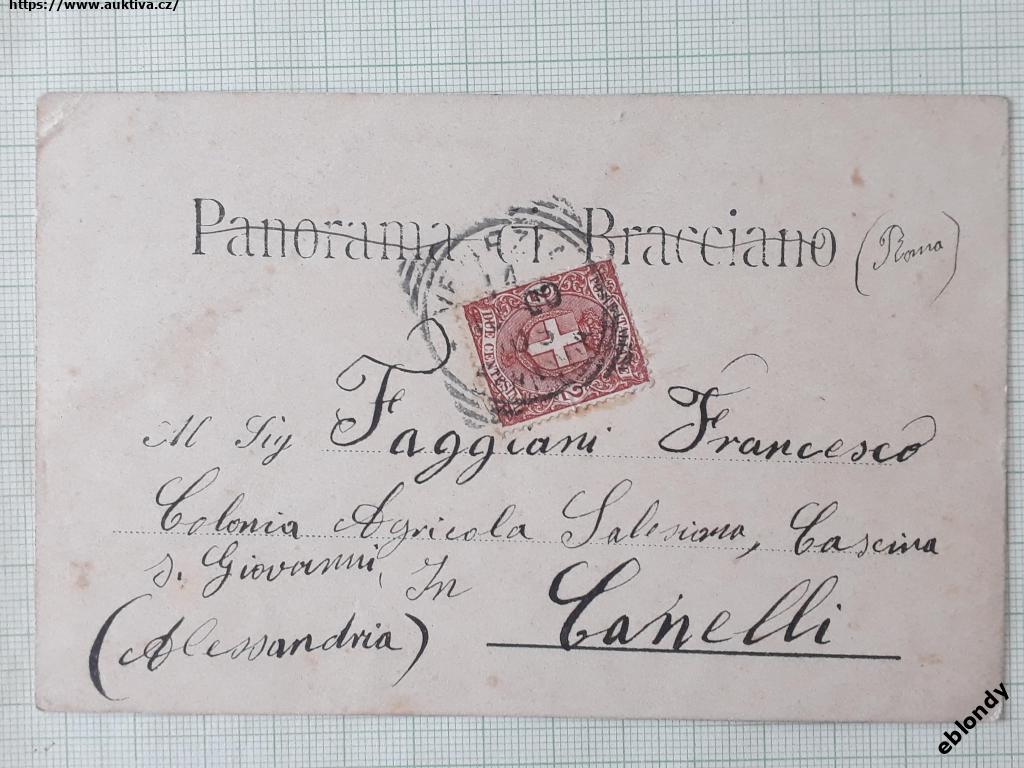 https://www.auktiva.cz/
Panorama di Bracciano (Roma)
DUE CENTESIMI
2
Al Sig Faggiani Francesco
Colonia Agricola Salesiana, Cascina
S. Giovanni, In
Canelli
(Alessandria)
eblondy